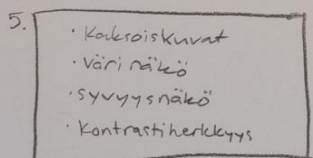 5.
· Kaksoiskuvat
· väri näkö
· syvyysnäkö
· Kontrastiherkkyys